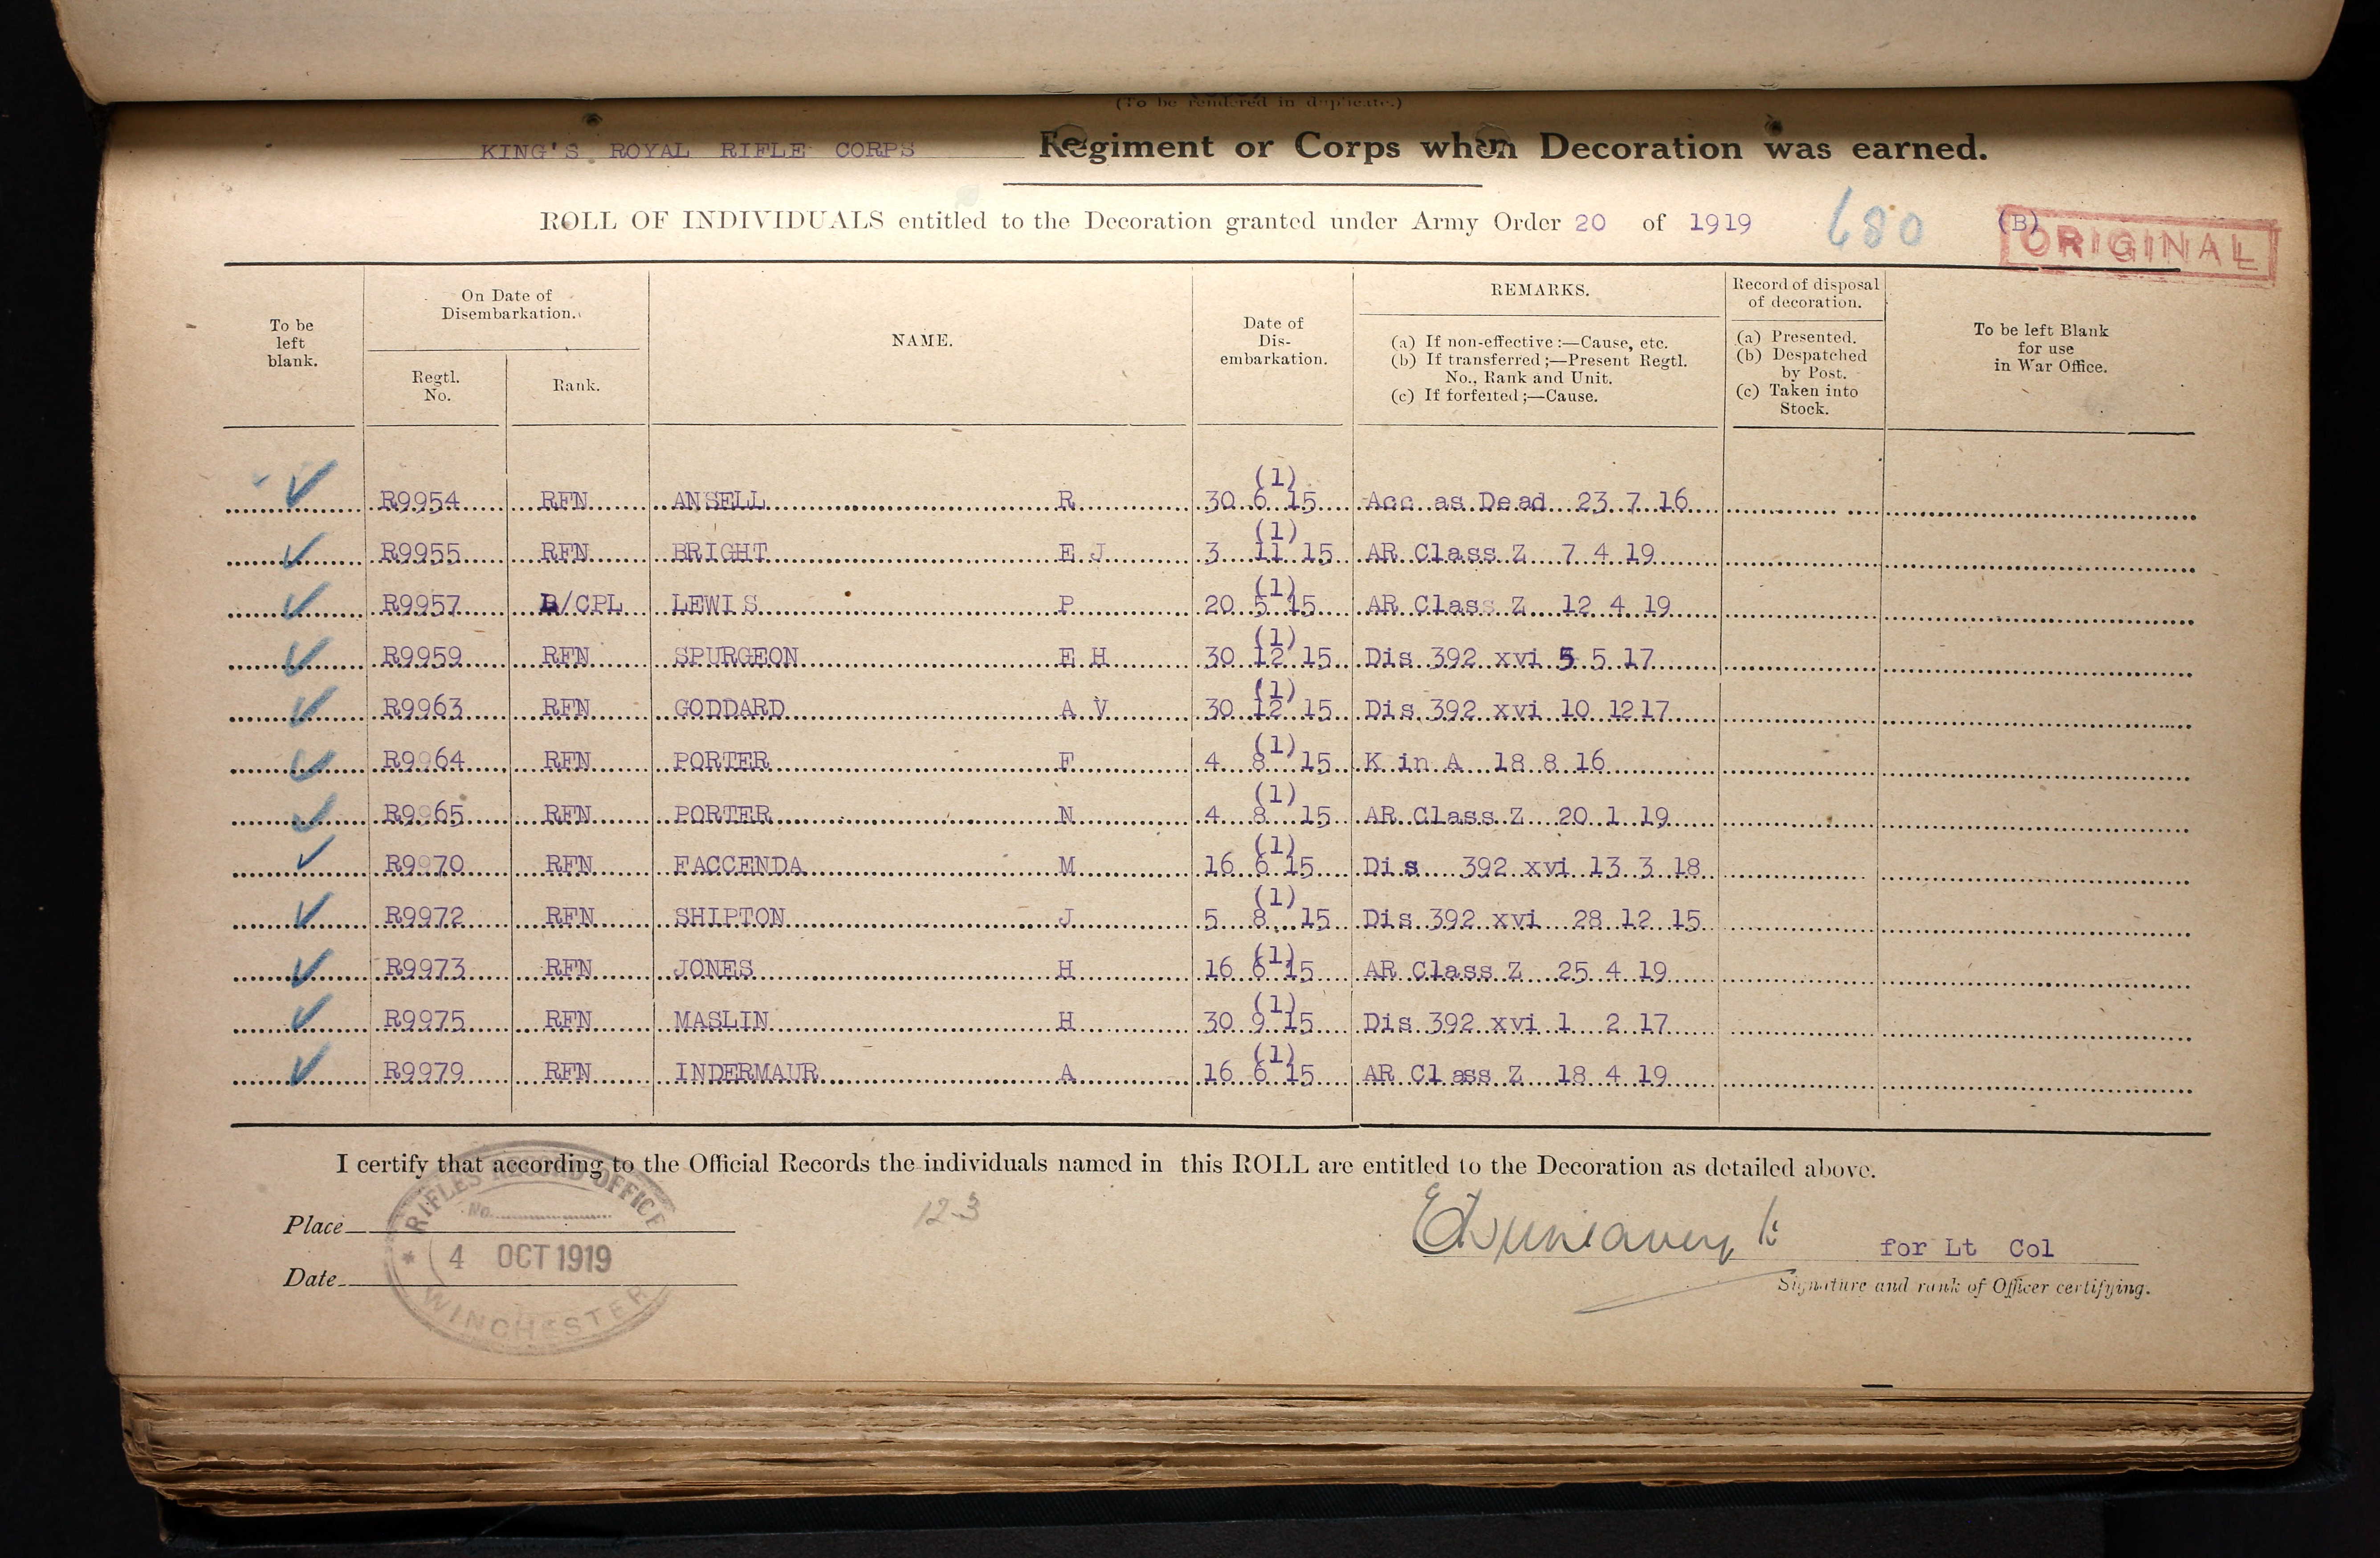 (To be rendered in duplicate.)
KING'S ROYAL RIFLE CORPS Regiment or Corps when Decoration was earned.
ROLL OF INDIVIDUALS entitled to the Decoration granted under Army Order 20 of 1919 680 (B)
ORIGINAL
To be left blank.
On Date of Disembarkation.
Regtl. No.
Rank.
NAME.
Date of Dis-embarkation.
REMARKS.
(a) If non-effective :—Cause, etc.
(b) If transferred ;—Present Regtl. No., Rank and Unit.
(c) If forfeited ;—Cause.
Record of disposal of decoration.
(a) Presented.
(b) Despatched by Post.
(c) Taken into Stock.
To be left Blank for use in War Office.
R9954 RFN ANSELL R 30 6 15 (1) Acc as Dead 23 7 16
R9955 RFN BRIGHT E J 3 11 15 (1) AR Class Z 7 4 19
R9957 /CPL LEWIS P 20 5 15 (1) AR Class Z 12 4 19
R9959 RFN SPURGEON E H 30 12 15 (1) Dis 392 xvi 5 5 17
R9963 RFN GODDARD A V 30 12 15 (1) Dis 392 xvi 10 12 17
R9964 RFN PORTER F 4 8 15 (1) K in A 18 8 16
R9965 RFN PORTER N 4 8 15 (1) AR Class Z 20 1 19
R9970 RFN FACCENDA M 16 6 15 (1) Dis 392 xvi 13 3 18
R9972 RFN SHIPTON J 5 8 15 (1) Dis 392 xvi 28 12 15
R9973 RFN JONES H 16 6 15 (1) AR Class Z 25 4 19
R9975 RFN MASLIN H 30 9 15 (1) Dis 392 xvi 1 2 17
R9979 RFN INDERMAUR A 16 6 15 (1) AR Class Z 18 4 19
I certify that according to the Official Records the individuals named in this ROLL are entitled to the Decoration as detailed above.
RIFLES RECORD OFFICE
No.
Place
4 OCT 1919
Date
WINCHESTER
12-3
for Lt Col
Signature and rank of Officer certifying.